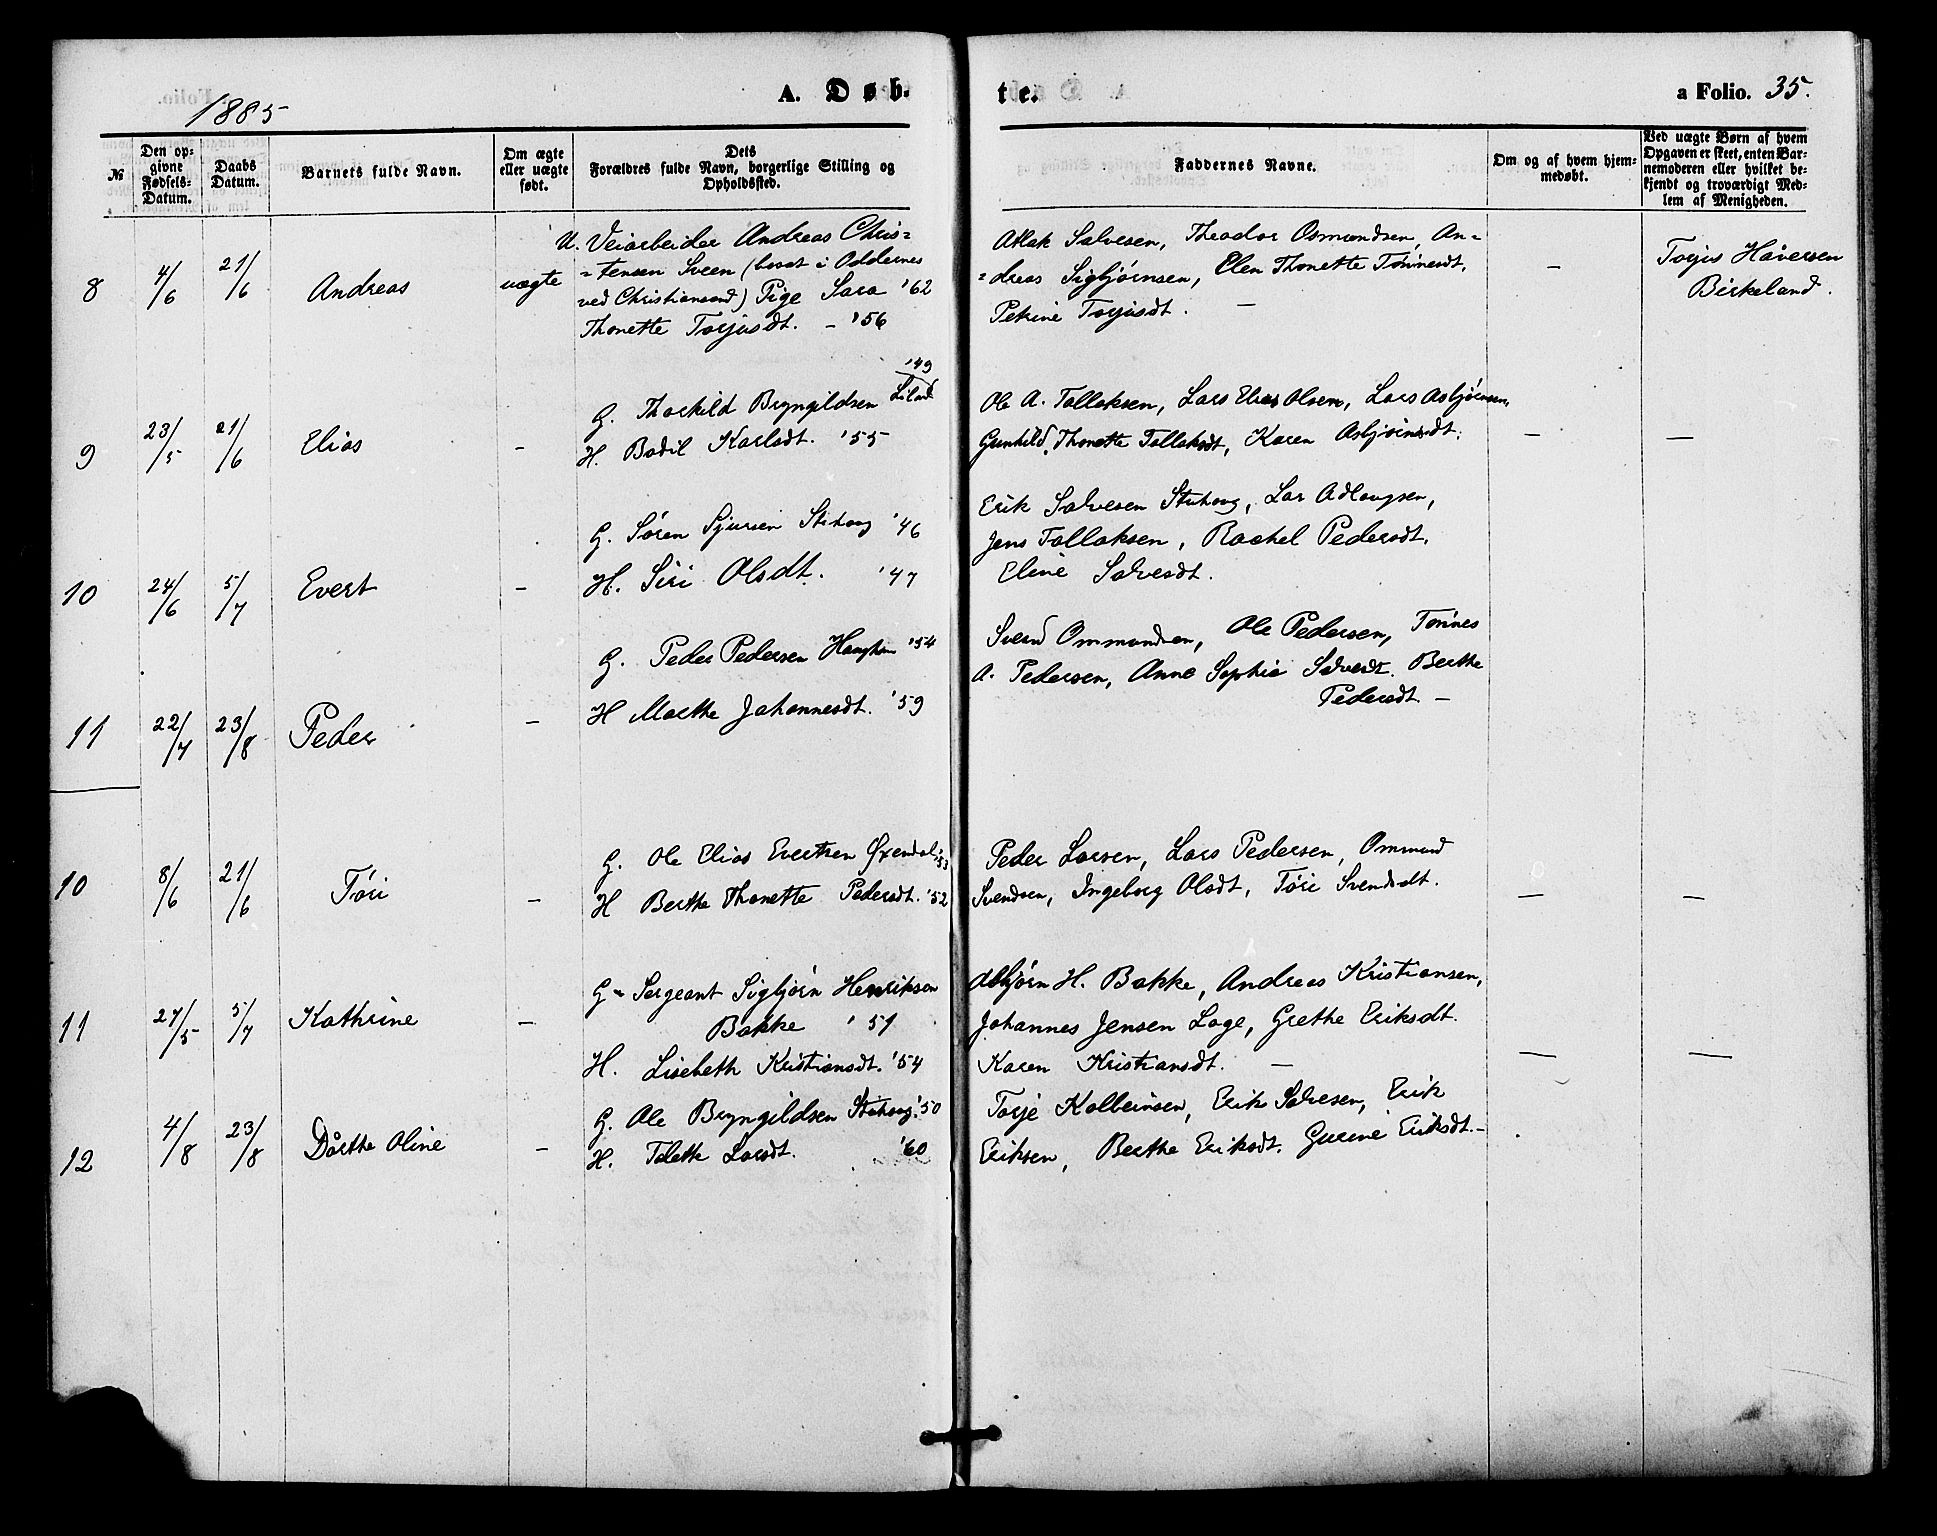 1885
A. Døb-
te.
a Folio. 35.
№
Den op-
givne
Fødsels-
Datum.
Daabs
Datum.
Barnets fulde Navn.
Om ægte
eller uægte
født.
Dets
Forældres fulde Navn, borgerlige Stilling og
Opholdssted.
Faddernes Navne.
Om og af hvem hjem-
medøbt.
Ved uægte Børn af hvem
Opgaven er skeet, enten Bar-
nemoderen eller hvilket be-
kjendt og troværdigt Med-
lem af Menigheden.
8 4/6 21/6 Andreas uægte
U. Veiarbeider Andreas Chris=
=tensen Sveen (bosat i Oddernes
ved Christiansand) Pige Sara '62
Thonette Torjusdt. – '56
Atlak Salvesen, Theodor Osmundsen, An=
=dreas Sigbjørnsen, Elen Thonette Tønnesdt,
Petrine Torjusdt. –
–
Torjus Håversen
Birkeland.
9 23/5 21/6 Elias –
'49
G. Thorkild Bryngildsen Liland
H. Bodil Karlsdt. '55
Ole A. Tollaksen, Lars Elias Olsen, Lars Asbjørnsen,
Gunhild Thonette Tollaksdt, Karen Asbjørnsdt.
– –
10 24/6 5/7 Evert –
G. Søren Sjursen Stuhaug '46
H. Siri Olsdt. '47
Erik Salvesen Stuhaug, Lar Adlaugsen,
Jens Tollaksen, Rachel Pedersdt,
Eline Salvesdt.
11 22/7 23/8 Peder –
G. Peder Pedersen '54
H Marthe Johannesdt. '59
Svend Ommundsen, Ole Pedersen, Tønnes
A. Pedersen, Anne Sophie Salvesdt. Berthe
Pedersdt –
10 8/6 21/6 Tøri –
G. Ole Elias Evertsen Øxendal '53
H Berthe Thonette Pedersdt. '52
Peder Larsen, Lars Pedersen, Ommund
Svendsen, Ingeborg Olsdt, Tøri Svendsdt.
– –
11 27/5 5/7 Kathrine –
G. Sergeant Sigbjørn Henriksen
Bakke '51
H. Lisebeth Kristiansdt. '54
Asbjørn H. Bakke, Andreas Kristiansen,
Johannes Jensen Lage, Grethe Eriksdt.
Karen Kristiansdt. –
– –
12 4/8 23/8 Dårthe Oline –
G. Ole Bryngildsen Stuhaug '50
H. Tolette Larsdt. '60
Torje Kolbeinsen, Erik Salvesen, Erik
Eriksen, Berthe Eriksdt. Gurine Eriksdt. –